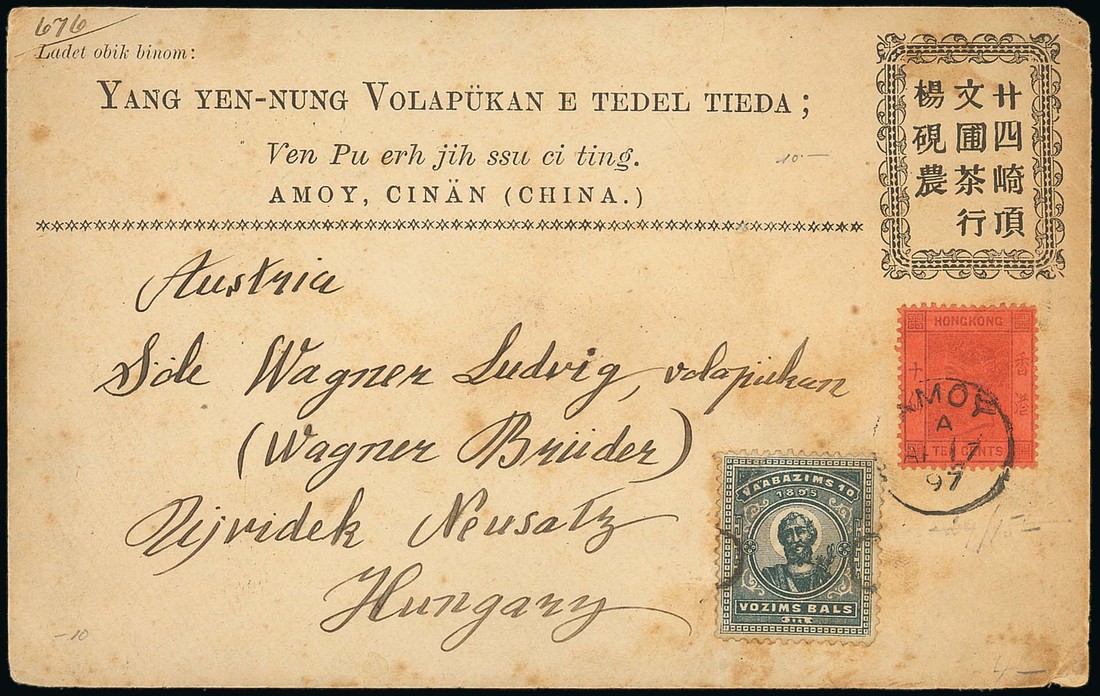 676
Ladet obik binom:
YANG YEN-NUNG VOLAPÜKAN E TEDEL TIEDA;
Ven Pu erh jih ssu ci ting.
AMOY, CINÄN (CHINA.)
廿四崎頂
文圃茶行
楊硯農
10.—
Austria
Söle Wagner Ludvig, volapükan
(Wagner Brüder)
Ujvidek Neusatz
Hungary
HONGKONG
香港
TEN CENTS
AMOY
A
17
97
VAABAZIMS 10
1895
VOZIMS BALS
-10